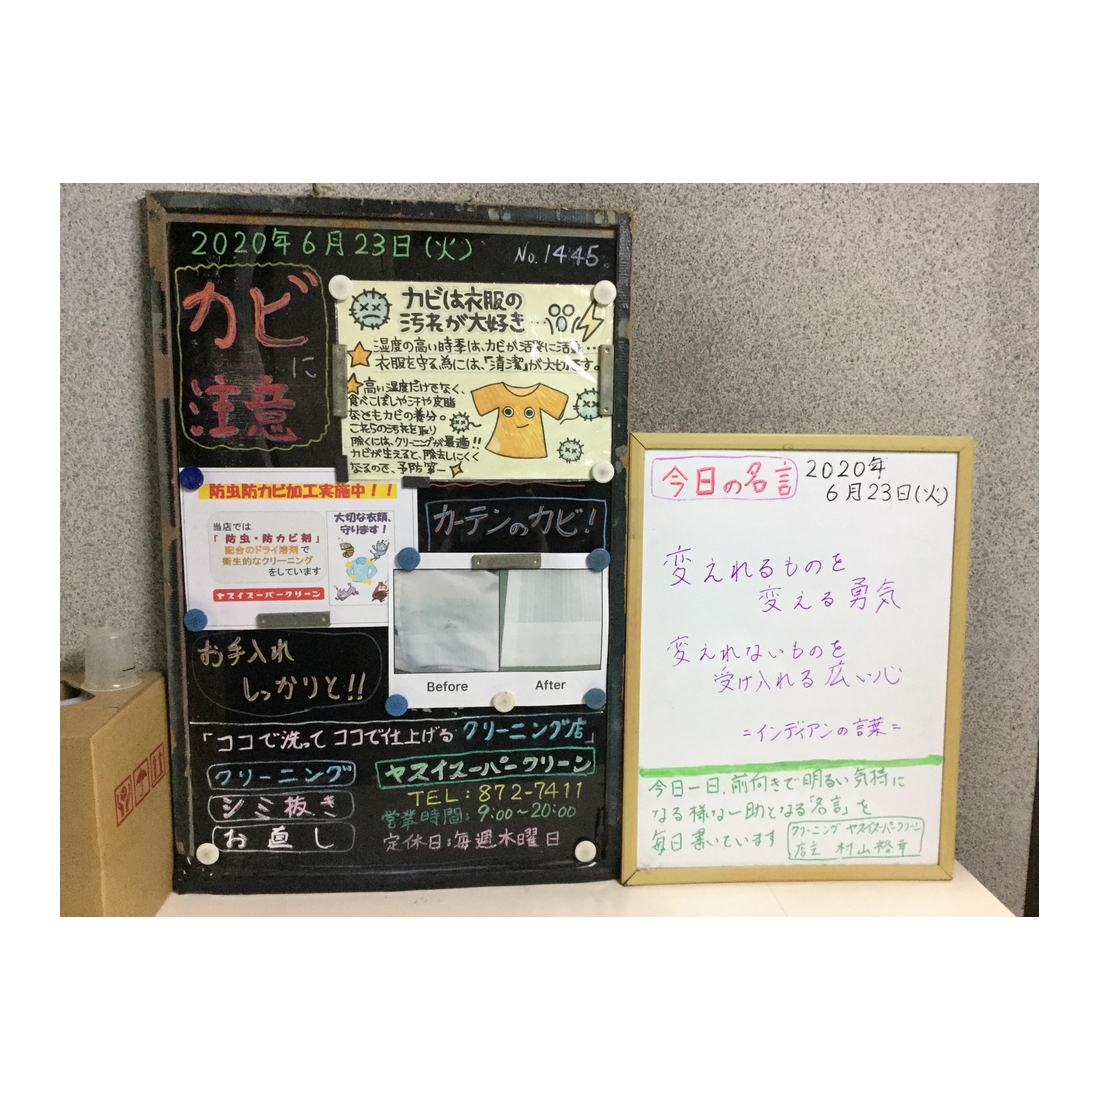 2020年6月23日(火)
No.1445
カビ
に
注意
カビは衣服の
汚れが大好き…
湿度の高い時季は、カビが活発に活動…
衣服を守る為には、「清潔」が大切です。
高い湿度だけでなく、
食べこぼしや汗や皮脂
などもカビの養分。
これらの汚れを取り
除くには、クリーニングが最適!!
カビが生えると、除去しにくく
なるので、予防第一
防虫防カビ加工実施中！！
当店では
「防虫・防カビ剤」
配合のドライ溶剤で
衛生的なクリーニング
をしています
ヤスイスーパークリーン
大切な衣類、
守ります！
カーテンのカビ!
Before
After
お手入れ
しっかりと!!
「ココで洗ってココで仕上げるクリーニング店」
クリーニング
シミ抜き
お直し
ヤスイスーパークリーン
TEL:872-7411
営業時間:9:00~20:00
定休日:毎週木曜日
今日の名言
2020年
6月23日(火)
変えれるものを
変える勇気
変えれないものを
受け入れる広い心
=インディアンの言葉=
今日一日、前向きで明るい気持に
なる様な一助となる「名言」を
毎日書いています
クリーニング ヤスイスーパークリーン
店主 村山